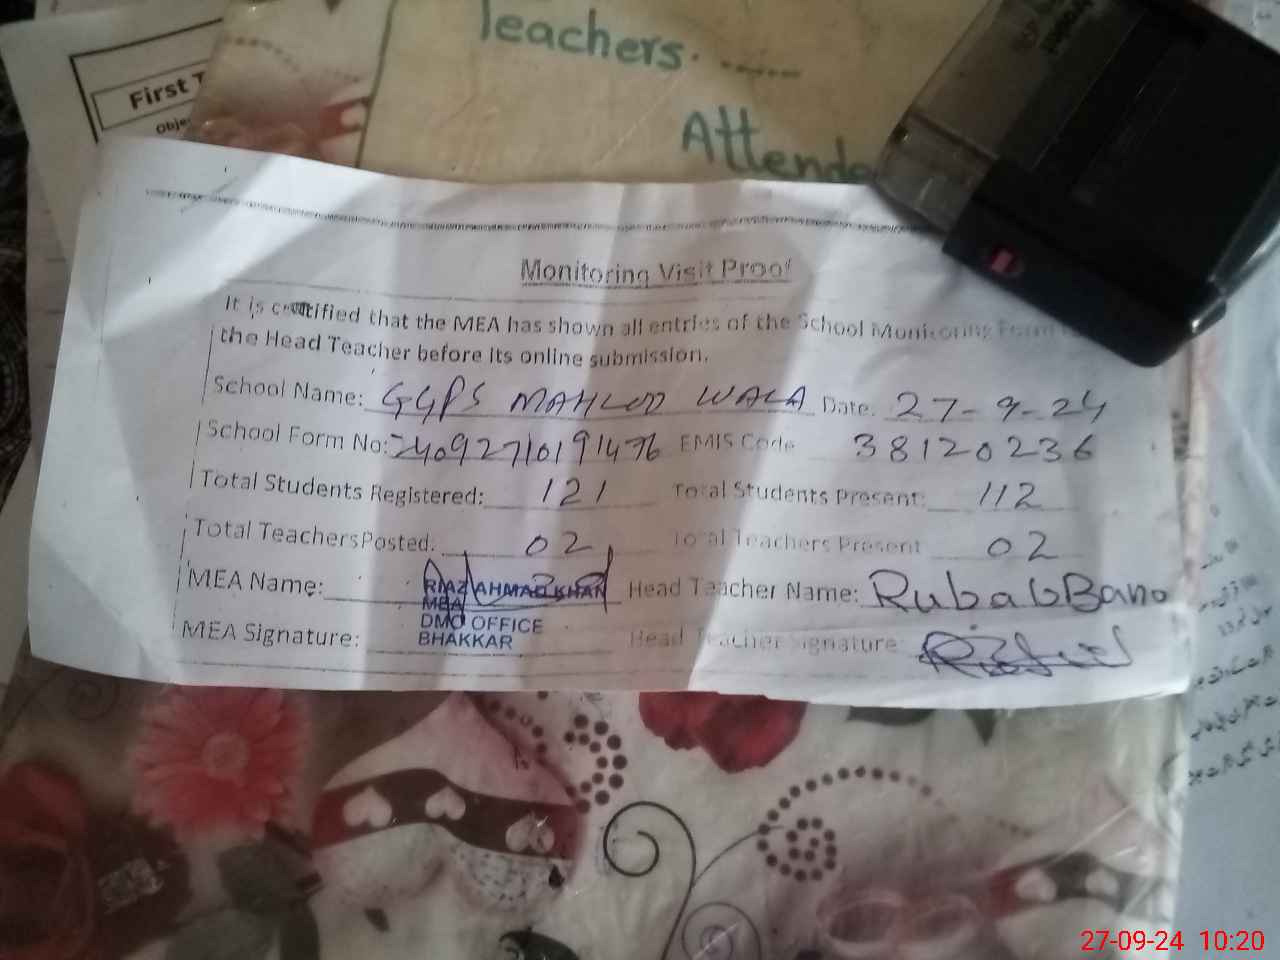 Teachers.
Attende
First T
Obje
Monitoring Visit Proof
It is certified that the MEA has shown all entries of the School Monitoring Form
the Head Teacher before its online submission.
School Name: GGPS MAHLOO WALA Date. 27-9-24
School Form No: 24092710191476 EMIS Code 38120236
Total Students Registered: 121 Total Students Present: 112
Total Teachers Posted: 02 Total Teachers Present 02
MEA Name: RIAZ AHMAD KHAN Head Teacher Name: Rubab Bano
MEA
DMO OFFICE
MEA Signature: BHAKKAR Head Teacher Signature:
27-09-24 10:20